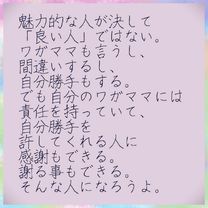 魅力的な人が決して
「良い人」ではない。
ワガママも言うし、
間違いするし、
自分勝手もする。
でも自分のワガママには
責任を持っていて、
自分勝手を
許してくれる人に
感謝もできる。
謝る事もできる。
そんな人になろうよ。